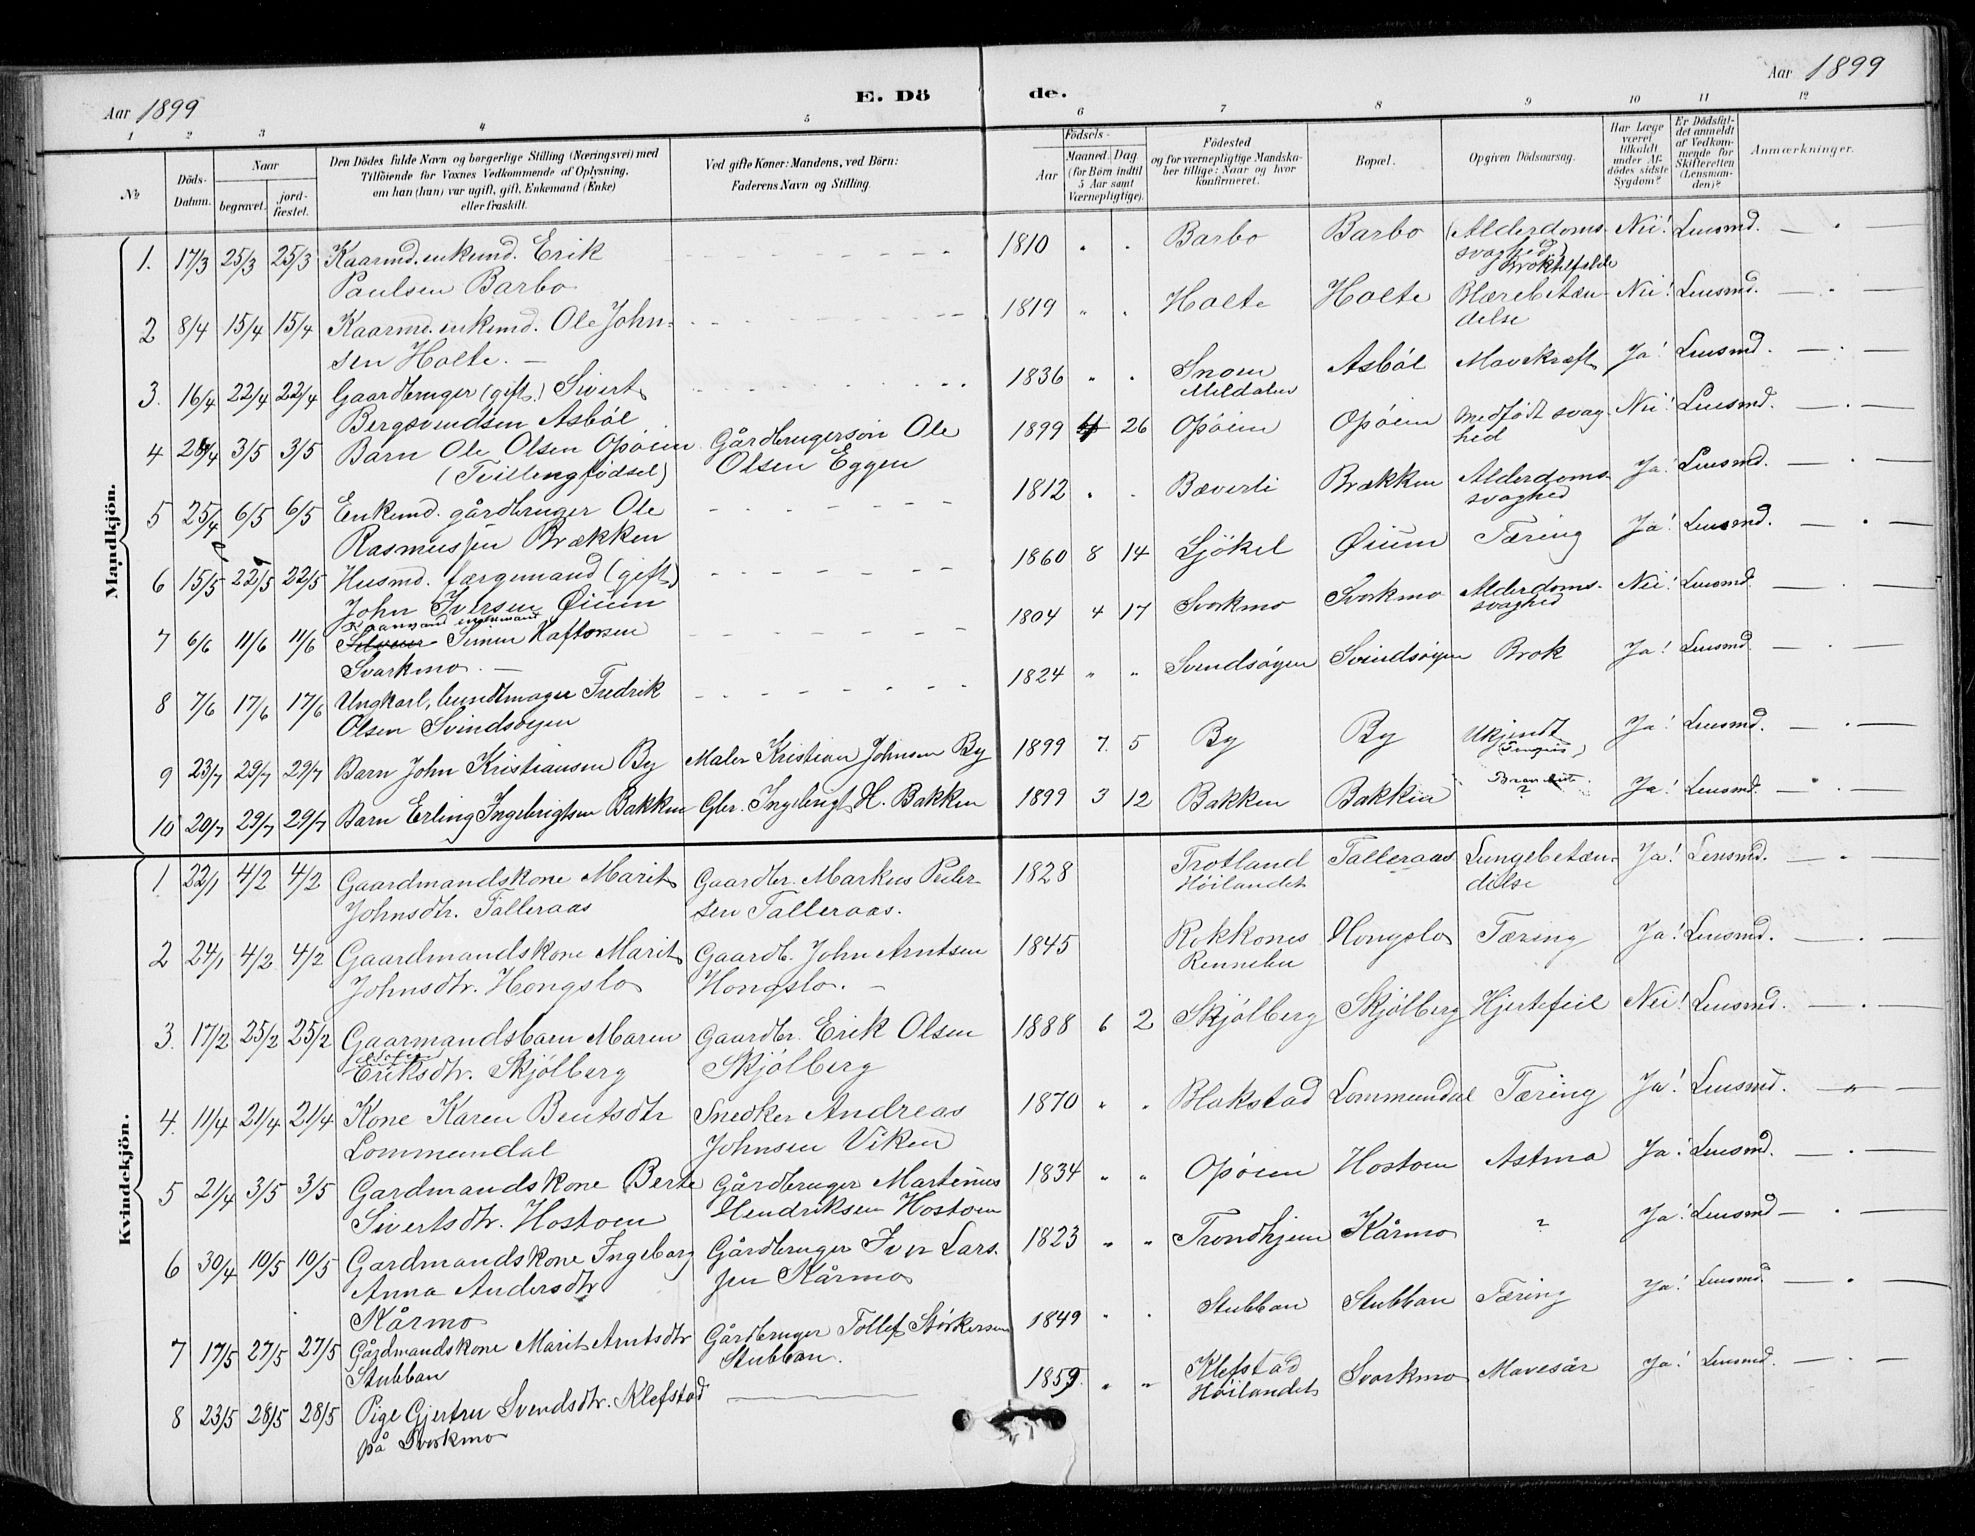 Aar 1899
E. Dö
de.
Aar 1899
1 2 3 4 5 6 7 8 9 10 11 12
No
Döds-
Datum.
Naar
begravet.
jord-
fæstet.
Den Dödes fulde Navn og borgerlige Stilling (Næringsvei) med
Tilföiende for Voxnes Vedkommende af Oplysning,
om han (hun) var ugift, gift, Enkemand (Enke)
eller fraskilt.
Ved gifte Koner: Mandens, ved Börn:
Faderens Navn og Stilling.
Födsels-
Aar
Maaned. Dag
(for Börn indtil
5 Aar samt
Værnepligtige).
Födested
og for værnepligtige Mandska-
ber tillige: Naar og hvor
konfirmeret.
Bopæl.
Opgiven Dödsaarsag.
Har Læge
været
tilkaldt
under Af-
dödes sidste
Sygdom?
Er Dödsfal-
det anmeldt
af Vedkom-
mende for
Skifteretten
(Lensman-
den)?
Anmærkninger.
Mandkjön.
1. 17/3 25/3 25/3 Kaarmd. enkemd. Erik
Paulsen Barbo
1810 Barbo Barbo (Alderdoms-
svaghed)
Broktilfælde
Nei! Lensmd.
2 8/4 15/4 15/4 Kaarmd. enkemd. Ole John-
sen Holte. —
1819 Holte Holte Blærebetæn-
delse
Nei! Lensmd.
3. 16/4 22/4 22/4 Gaardbruger (gift) Sivert
Bergsvendsen Asböl
1836 Snoen
Meldalen
Asböl Mavekræft Ja! Lensmd.
4 26/4 3/5 3/5 Barn Ole Olsen Opöien
(Tvillingfødsel)
Gårdbrugersön Ole
Olsen Eggen
1899 4 26 Opöien Opöien Medfödt svag
hed
Nei! Lensmd.
5 25/4 6/5 6/5 Enkemd. gårdbruger Ole
Rasmussen Brækken
1812 Bæverli Brækken Alderdoms-
svaghed
Ja! Lensmd.
6 15/5 22/5 22/5 Husmd. færgemand (gift)
John Iversen Øium
1860 8 14 Sjökel Øium Tæring Ja! Lensmd.
7 6/6 11/6 11/6 Kaarmand enkemand
Simen Haftorsen
Svarkmo. —
1804 4 17 Svorkmo Svorkmo Alderdoms-
svaghed
Nei! Lensmd.
8 7/6 17/6 17/6 Ungkarl, bundtmager Fredrik
Olsen Svindsöyen
1824 Svindsöyen Svindsöyen Brok Ja! Lensmd.
9 23/7 29/7 29/7 Barn John Kristiansen By Maler Kristian Johnsen By
1899 7. 5 By By Ukjendt
Ja! Lensmd.
10 20/7 29/7 29/7 Barn Erling Ingebrigtsen Bakken Gbr. Ingebrigt H. Bakken
1899 3 12 Bakken Bakken
?
Ja! Lensmd.
Kvindekjön.
1 22/1 4/2 4/2 Gaardmandskone Marit
Johnsdtr. Talleraas
Gaardbr. Markus Peder-
sen Talleraas.
1828 Trotland
Höilandet
Talleraas Lungebetæn-
delse
Ja! Lensmd.
2 24/1 4/2 4/2 Gaardmandskone Marit
Johnsdtr. Hongslo
Gaardb. John Arntsen
Hongslo. —
1845 Rokkones
Rennebu
Hongslo Tæring Ja! Lensmd.
3. 17/2 25/2 25/2 Gaarmandsbarn Maren
Eriksdtr. Skjölberg
Gaardbr. Erik Olsen
Skjölberg
1888 6 2 Skjölberg Skjölberg Hjertefeil Nei! Lensmd.
4. 11/4 21/4 21/4 Kone Karen Bentsdtr
Lommundal
Snedker Andreas
Johnsen Viken
1870 Blokstad Lommundal Tæring Ja! Lensmd.
5 21/4 3/5 3/5 Gardmandskone Berte
Sivertsdtr. Hostoen
Gårdbruger Martinus
Hendriksen Hostoen
1834 Opöien Hostoen Astma Ja! Lensmd.
6 30/4 10/5 10/5 Gardmandskone Ingeborg
Anna Andersdtr
Kårmo
Gårdbruger Iver Lars-
sen Kårmo
1823 Trondhjem Kårmo ? Ja! Lensmd
7 17/5 27/5 27/5 Gårdmandskone Marit Arntsdtr
Stubban
Gårdbruger Tollef Störkersen
Stubban.
1849 Stubban Stubban Tæring Ja! Lensmd.
8 23/5 28/5 28/5 Pige Gjertru Svendsdtr. Klefstad
på Svorkmo
1859. Klefstad
Höilandet
Svorkmo Mavesår Ja! Lensmd.